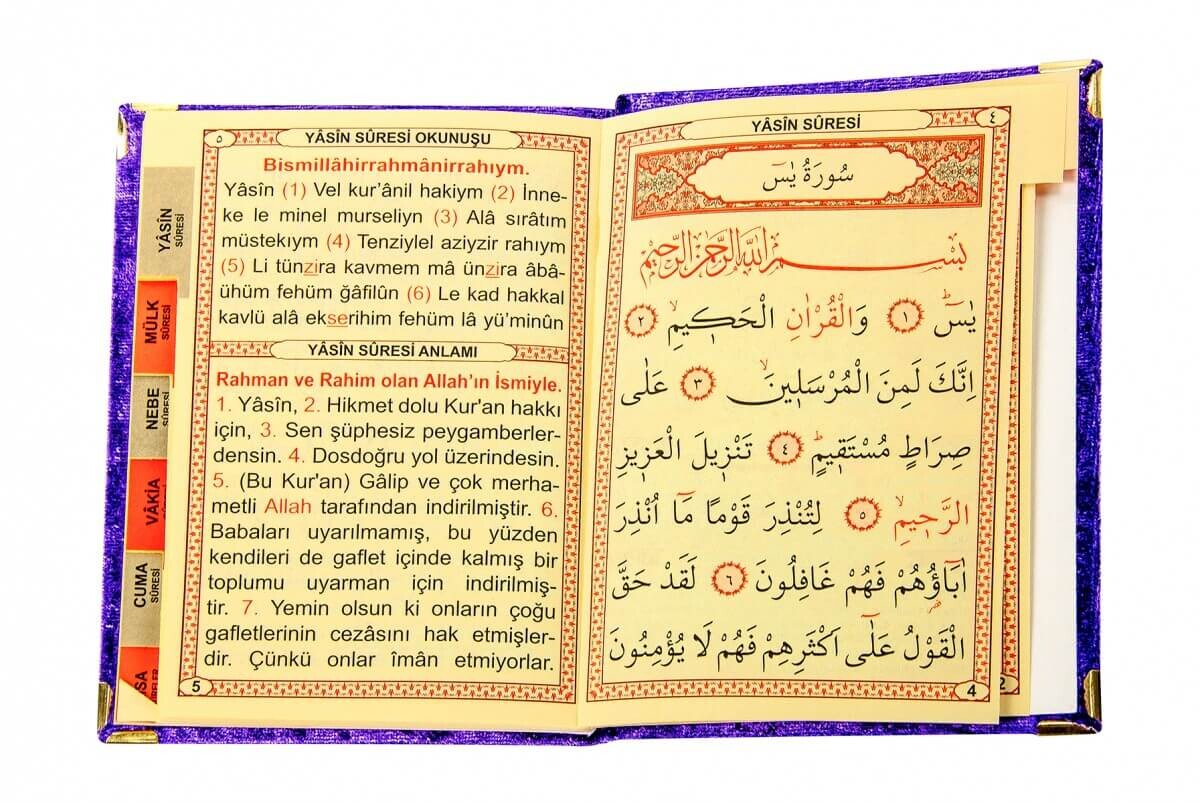 YÂSÎN SÛRESİ
٤
سُورَةُ يٰسٓ
بِسْمِ اللّٰهِ الرَّحْمٰنِ الرَّحِيمِ
يٰسٓ ۚ ﴿١﴾ وَالْقُرْاٰنِ الْحَكِيمِ ۙ ﴿٢﴾
اِنَّكَ لَمِنَ الْمُرْسَلِينَ ۙ ﴿٣﴾ عَلٰى
صِرَاطٍ مُسْتَقِيمٍ ۜ ﴿٤﴾ تَنْزِيلَ الْعَزِيزِ
الرَّحِيمِ ۙ ﴿٥﴾ لِتُنْذِرَ قَوْمًا مَٓا اُنْذِرَ
اٰبَٓاؤُ۬هُمْ فَهُمْ غَافِلُونَ ﴿٦﴾ لَقَدْ حَقَّ
الْقَوْلُ عَلٰٓى اَكْثَرِهِمْ فَهُمْ لَا يُؤْمِنُونَ
4
2
٥
YÂSÎN SÛRESİ OKUNUŞU
Bismillâhirrahmânirrahıym.
Yâsîn (1) Vel kur’ânil hakiym (2) İnne-
ke le minel murseliyn (3) Alâ sırâtım
müstekıym (4) Tenziylel aziyzir rahıym
(5) Li tünzira kavmem mâ ünzira âbâ-
ühüm fehüm ğâfilûn (6) Le kad hakkal
kavlü alâ ekserihim fehüm lâ yü’minûn
YÂSÎN SÛRESİ ANLAMI
Rahman ve Rahim olan Allah’ın İsmiyle.
1. Yâsîn, 2. Hikmet dolu Kur'an hakkı
için, 3. Sen şüphesiz peygamberler-
densin. 4. Dosdoğru yol üzerindesin.
5. (Bu Kur'an) Gâlip ve çok merha-
metli Allah tarafından indirilmiştir. 6.
Babaları uyarılmamış, bu yüzden
kendileri de gaflet içinde kalmış bir
toplumu uyarman için indirilmiş-
tir. 7. Yemin olsun ki onların çoğu
gafletlerinin cezâsını hak etmişler-
dir. Çünkü onlar îmân etmiyorlar.
5
YÂSİN
SÛRESİ
MÜLK
SÛRESİ
NEBE
SÛRESİ
VÂKIA
CUMA
SÛRESİ